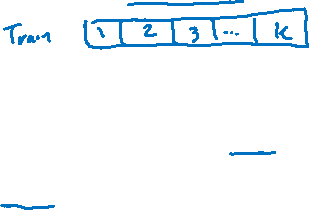 Train 1 2 3 ... K